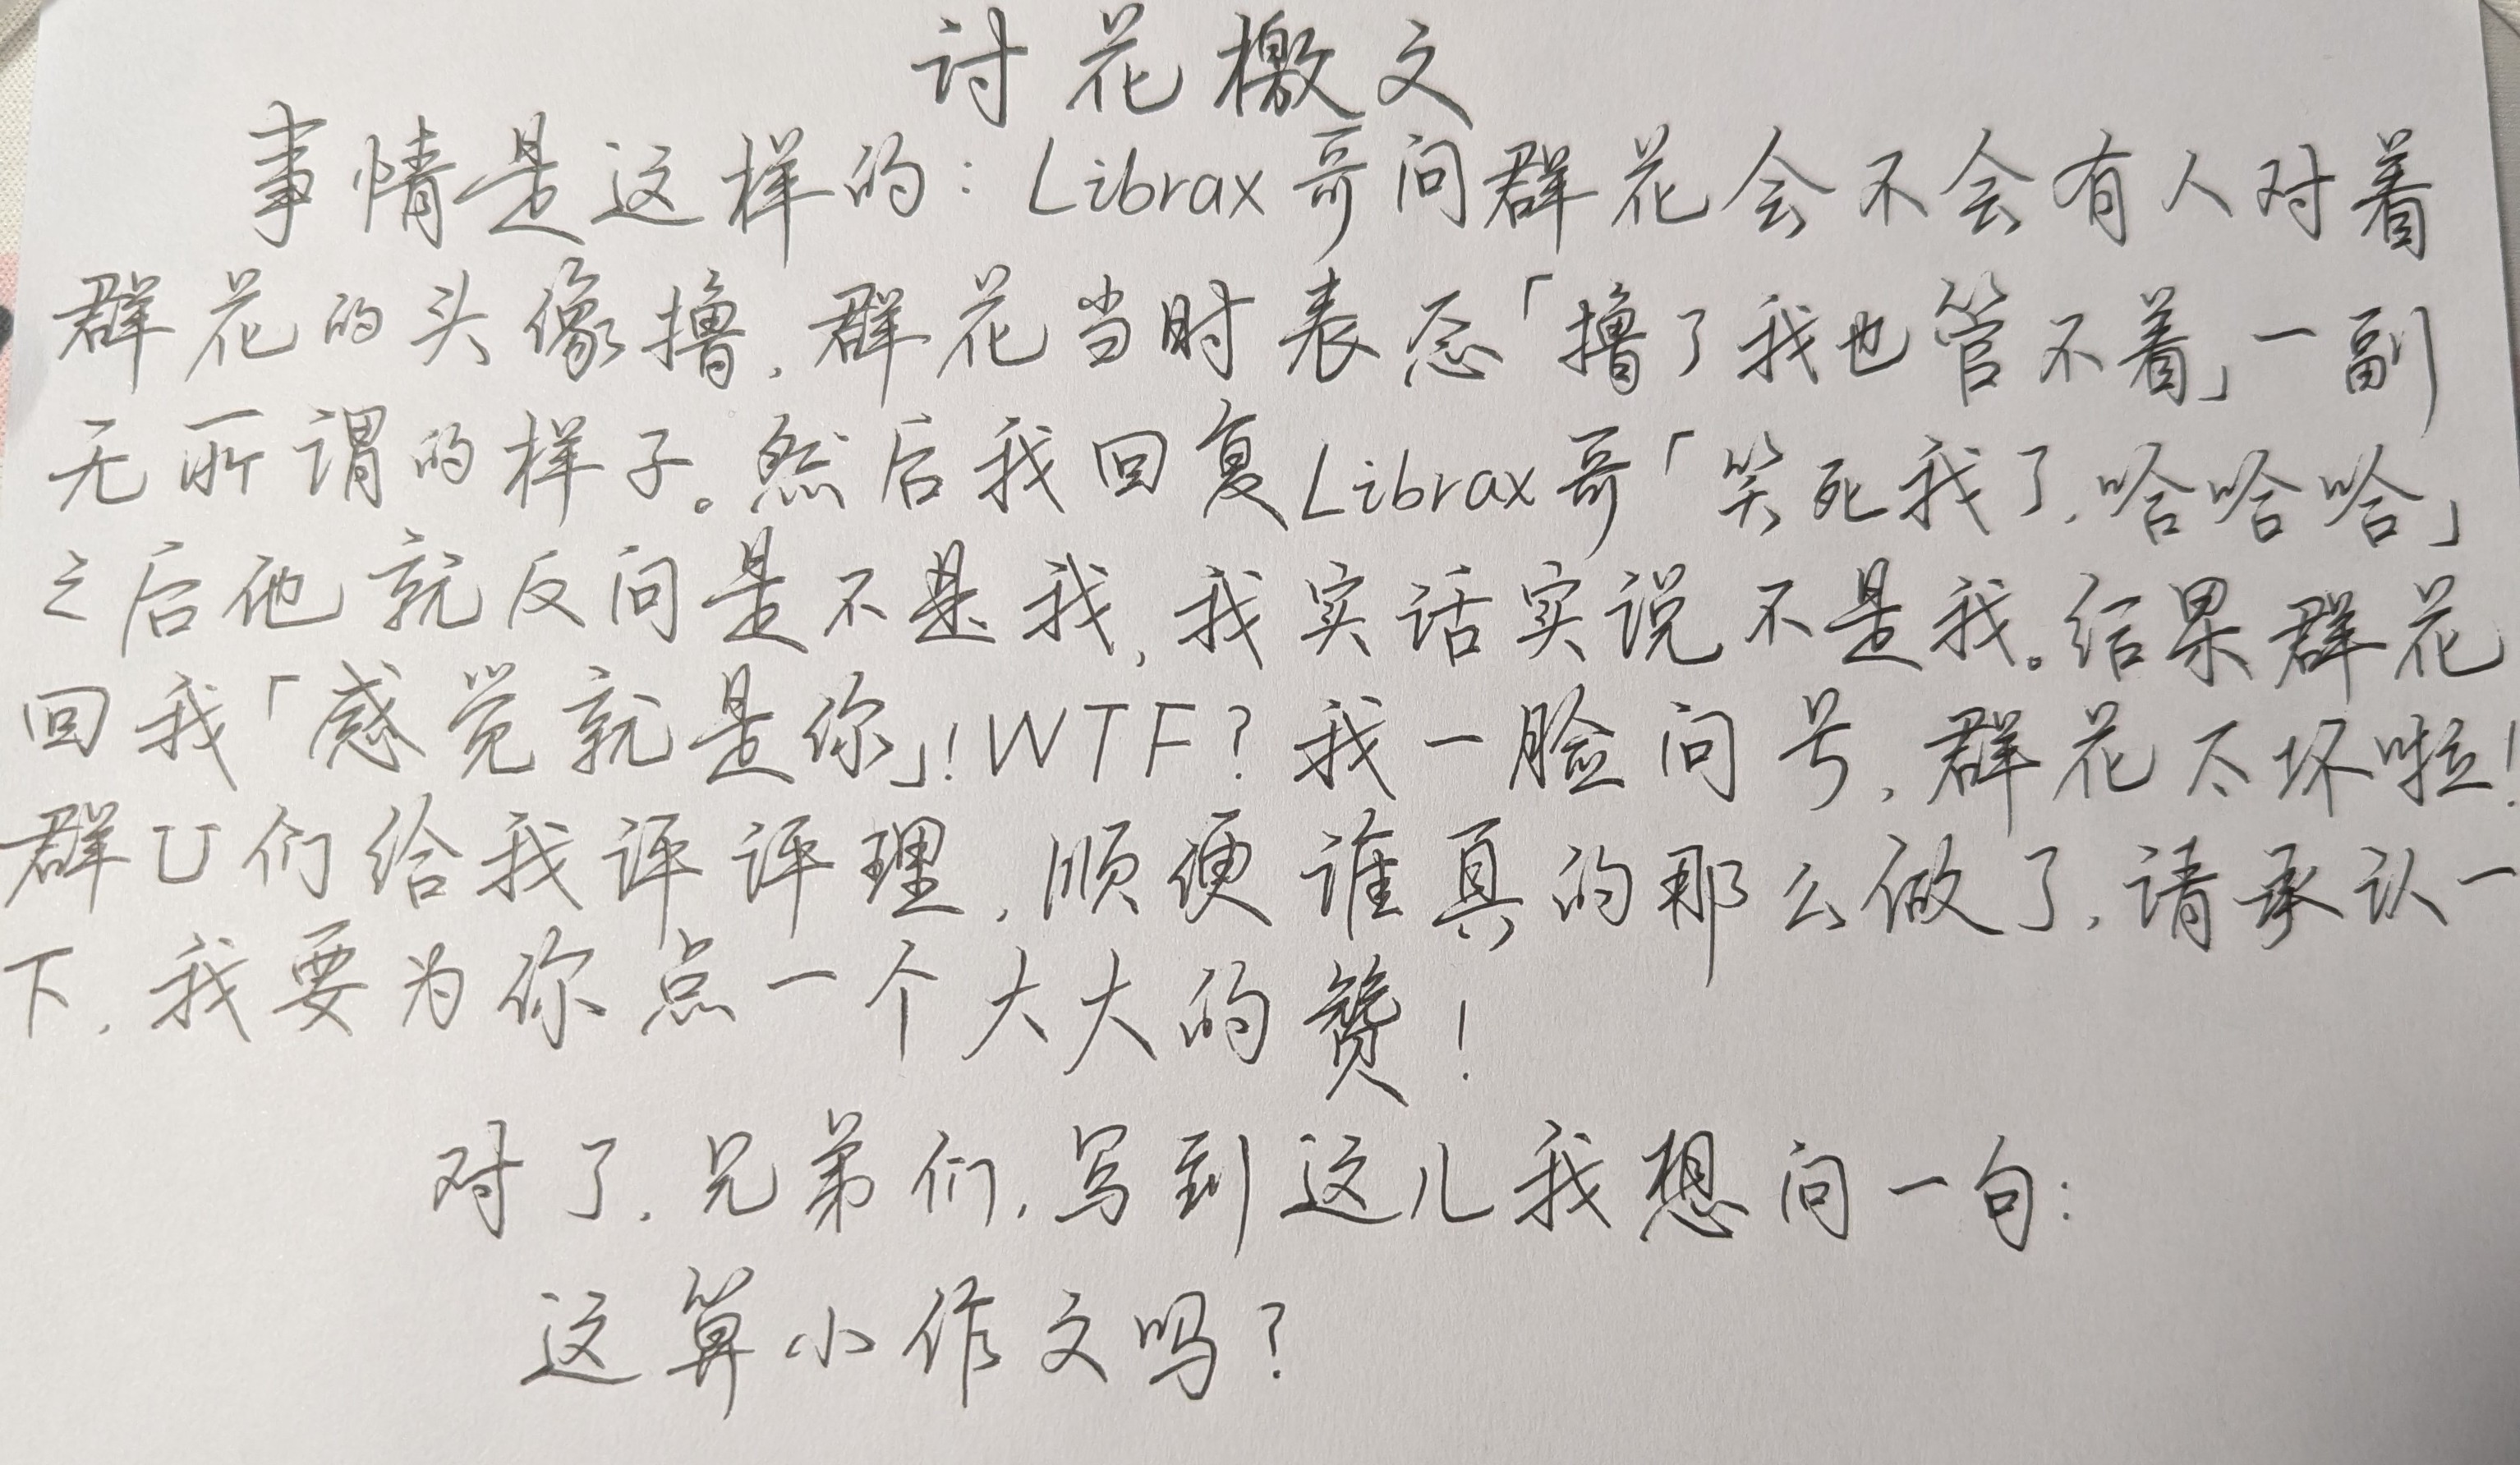 讨花檄文
事情是这样的：Librax哥问群花会不会有人对着
群花的头像撸，群花当时表态「撸了我也管不着」一副
无所谓的样子。然后我回复Librax哥「笑死我了，哈哈哈」
之后他就反问是不是我，我实话实说不是我。结果群花
回我「感觉就是你」！WTF？我一脸问号，群花太坏啦！
群U们给我评评理，顺便谁真的那么做了，请承认一
下，我要为你点一个大大的赞！
对了，兄弟们，写到这儿我想问一句：
这算小作文吗？